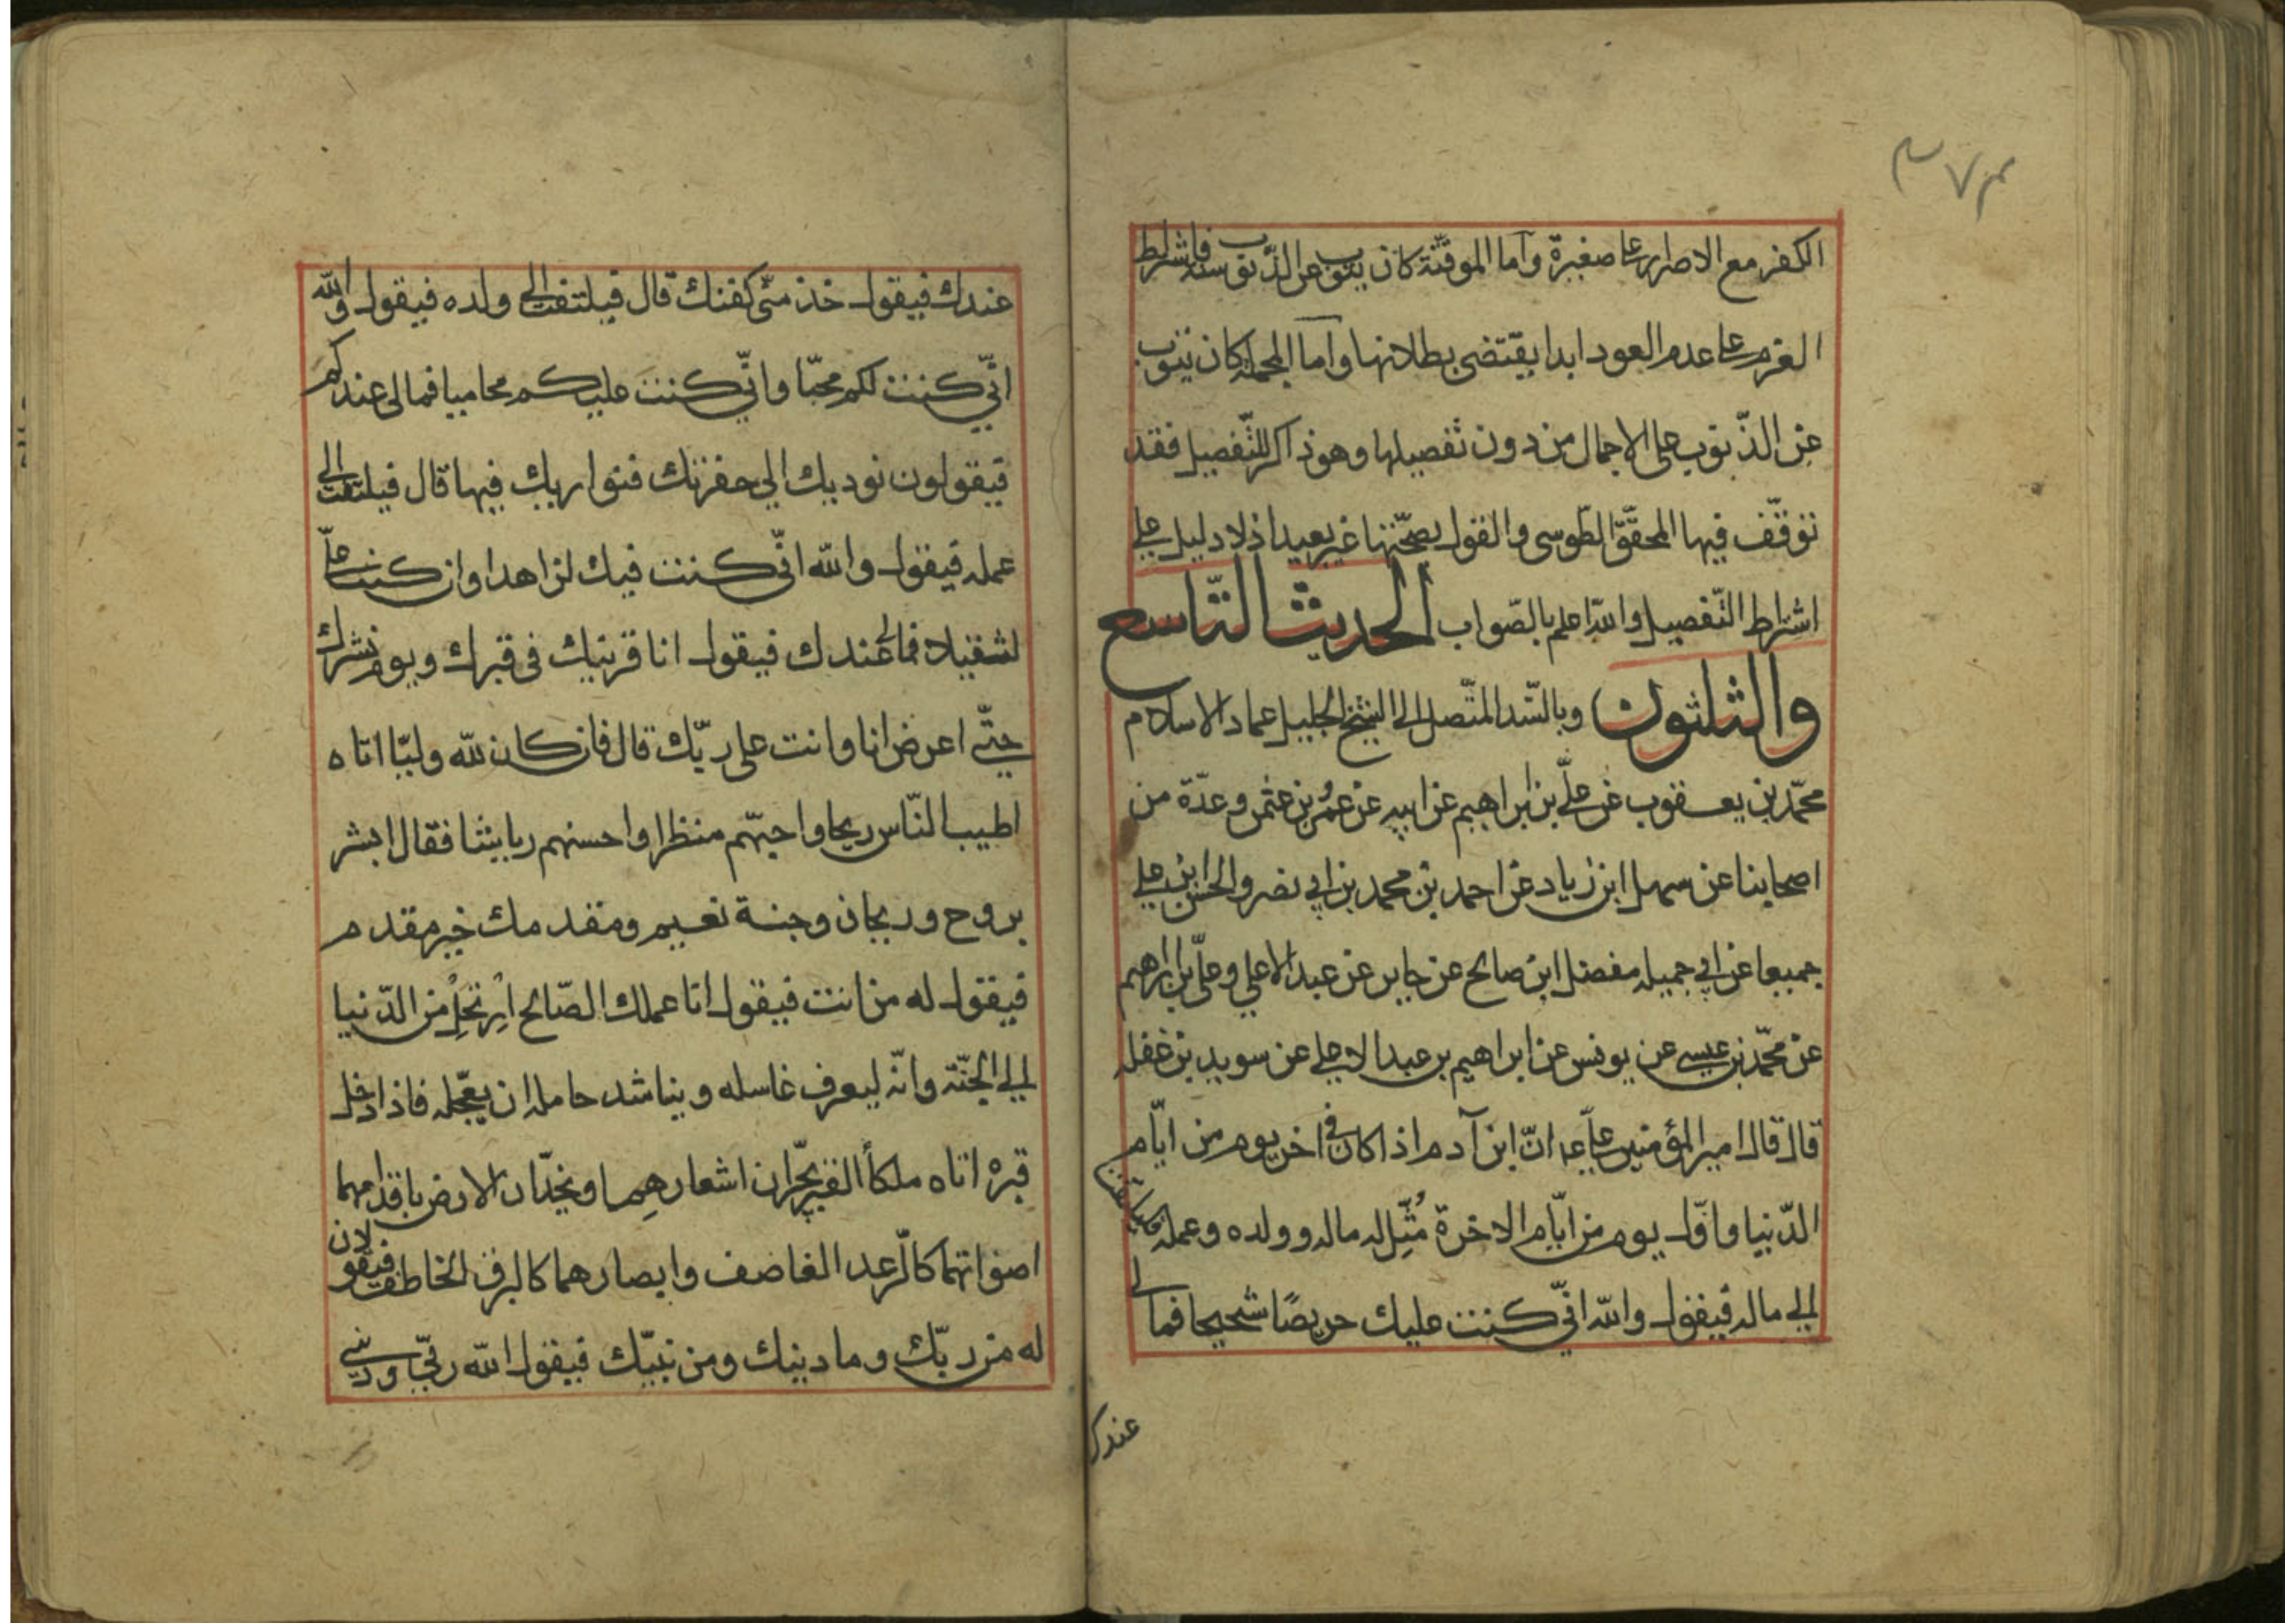 ٣٧٣
الكفر مع الاصرار على صغيرة وأما الموقتة كان يتوب عن الذنوب سنة فاشتراط
العزم على عدم العود ابدا يقتضى بطلانها وأما المجملة كان يتوب
عن الذّنوب على الاجمال من دون تفصيلها وهو ذاكر للتّفصيل فقد
توقّف فيها المحقّق الطّوسى والقول بصحّتها غير بعيد اذ لا دليل على
اشتراط التّفصيل والله اعلم بالصّواب الحديث التّاسع
والثلثون وبالسّند المتّصل الى الشيخ الجليل عماد الاسلام
محمّد بن يعقوب عن علىّ بن ابراهيم عن ابيه عن عمرو بن عثمن وعدّة من
اصحابنا عن سهل ابن زياد عن احمد بن محمد بن ابى نصر والحسن ابن على
جميعا عن ابى جميله مفضل ابن صالح عن جابر عن عبد الاعلى وعلىّ بن ابراهيم
عن محمّد بن عيسى عن يونس عن ابراهيم بن عبد الاعلى عن سويد بن غفله
قال قال امير المؤمنين على ع انّ ابن آدم اذا كان فى اخر يوم من ايّام
الدّنيا واوّل يوم من ايّام الاخرة مُثّل له ماله وولده وعمله فيلتفت
الى ماله فيقول والله انّى كنت عليك حريصًا شحيحا فمالى
عندك
عندك فيقول خذ منّى كفنك قال فيلتفت الى ولده فيقول والله
انّى كنت لكم محبّا وانّى كنت عليكم محاميا فمالى عندكم
فيقولون نوديك الى حفرتك فنواريك فيها قال فيلتفت الى
عمله فيقول والله انّى كنت فيك لزاهدا وان كنت علىّ
لثقيلا فمالى عندك فيقول انا قرينك فى قبرك ويوم نشرك
حتّى اعرض انا وانت على ربّك قال فان كان لله وليّا اتاه
اطيب النّاس ريحا واحبّهم منظرا واحسنهم رياشا فقال ابشر
بروح وريحان وجنة نعيم ومقدمك خير مقدم
فيقول له من انت فيقول انا عملك الصّالح اِرْتحِلْ من الدّنيا
الى الجنّة وانّه ليعرف غاسله ويناشد حامله ان يعجّله فاذا دخل
قبره اتاه ملكا القبر يجرّان اشعارهما ويخدّان الارض باقدامهما
اصواتهما كالّرعد القاصف وابصارهما كالبرق الخاطف فيقولان
له من ربّك وما دينك ومن نبيّك فيقول الله ربّى ودينى